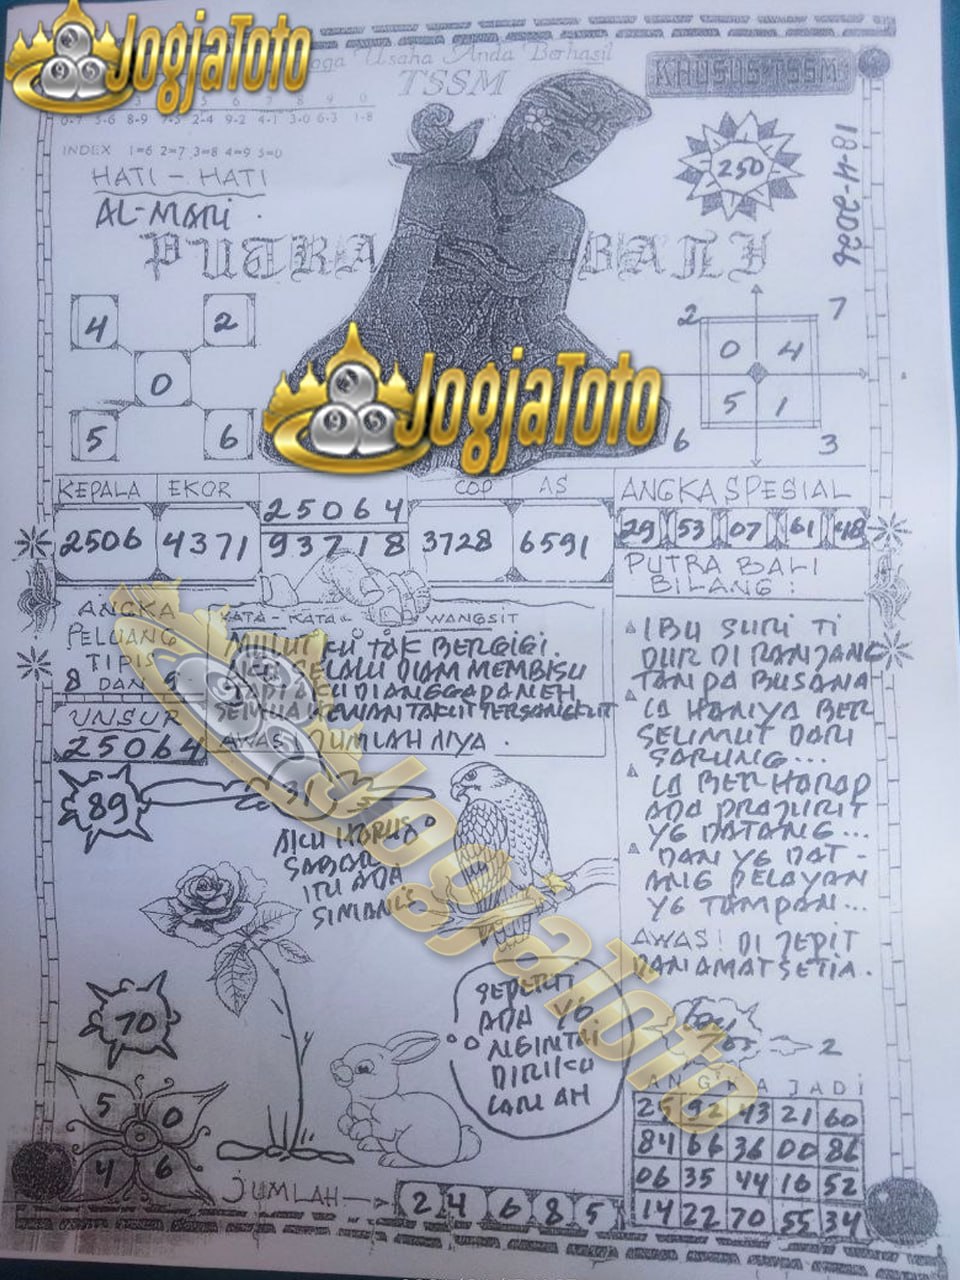 JogjaToto
Usaha Anda Berhasil
TSSM
KHUSUS TSSM
8-9 2-4 9-2 4-1 3-0 6-3 1-8
INDEX 1=6 2=7 3=8 4=9 5=0
HATI - HATI
AL-MARI.
PUTRA BALI
250
18-4-2026
4 2
0
5 6
2 7
0 4
5 1
6 3
KEPALA EKOR COP AS
2506 4371 25064 3728 6591
93718
ANGKA SPESIAL
29 53 07 61 48
JogjaToto
ANGKA
PELUANG
TIPIS
8 DAN 9
UNSUR
25064
KATA - KATA WANGSIT
MULUTKU TAK BERGIGI.
SELALU DIAM MEMBISU
DIANGGAP ANEH
SEMUA HEWAN TAKUT TERSANGKUT
AWAS JUMLAHNYA.
PUTRA BALI
BILANG:
IBU SURI TI
DUR DI RANJANG
TANPA BUSANA
IA HANYA BER
SELIMUT DARI
SARUNG...
IA BERHARAP
ADA PRAJURIT
YG DATANG...
DAN YG DAT-
ANG PELAYAN
YG TAMPAN...
AWAS! DI JEPIT
DAN AMAT SETIA.
89
31
AKU HARUS
SABAR
ITU ADA
JogjaToto
70
SEPERTI
ADA YG
NGINTAI
DIRIKU
LAH AH
5 0
4 6
JUMLAH
2 4 6 8 5
2
ANGKA JADI
25 92 43 21 60
84 66 36 00 86
06 35 44 16 52
14 22 70 55 34